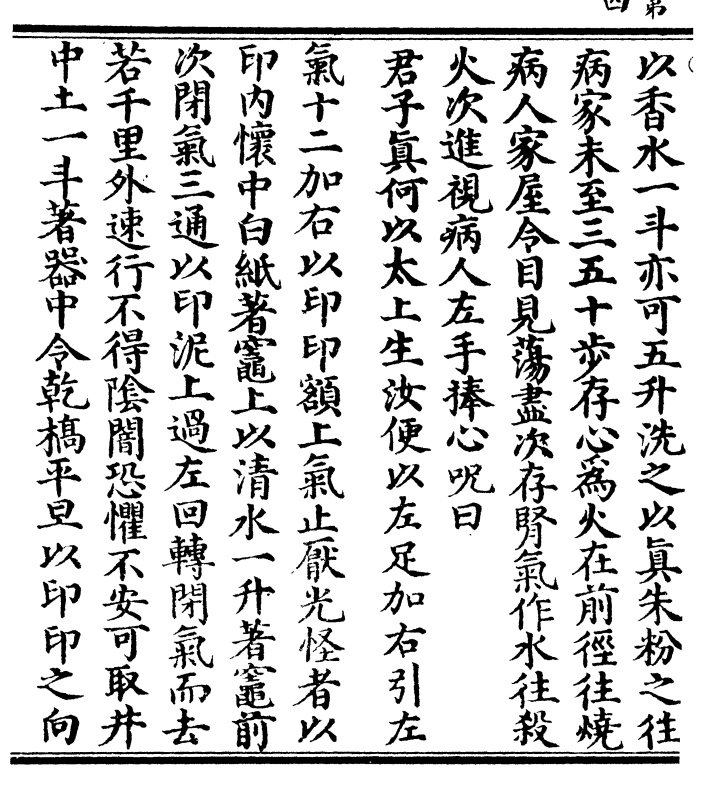 第
四
以香水一斗亦可五升洗之以眞朱粉之往
病家未至三五十步存心爲火在前徑往燒
病人家屋令目見蕩盡次存腎氣作水往殺
火次進視病人左手捧心呪曰
君子眞何以太上生汝便以左足加右引左
氣十二加右以印印額上氣止厭光怪者以
印內懷中白紙著竈上以清水一升著竈前
次閉氣三通以印泥上過左回轉閉氣而去
若千里外速行不得陰闇恐懼不安可取井
中土一斗著器中令乾槁平旦以印印之向